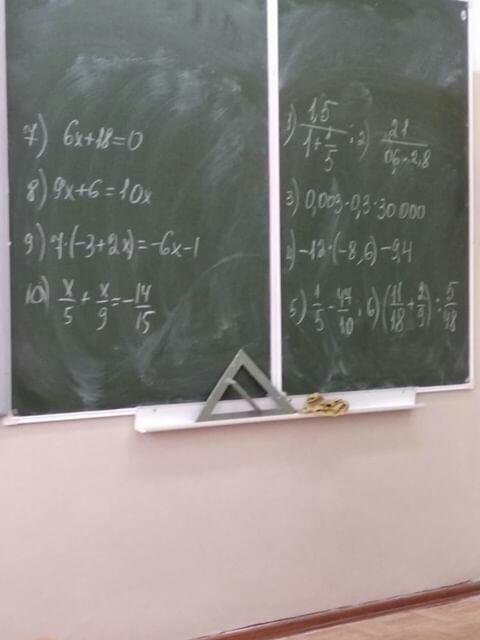 7) 6x+18=0
8) 9x+6=10x
9) 7·(-3+2x)=-6x-1
10) x/5 + x/9 = -14/15
1) 1,5/(1+1/5) ; 2) 21/(0,6·2,8)
3) 0,003·0,3·30 000
4) -12·(-8,6)-9,4
5) 1/5 - 47/10 ; 6) (11/18 + 2/9) : 5/48